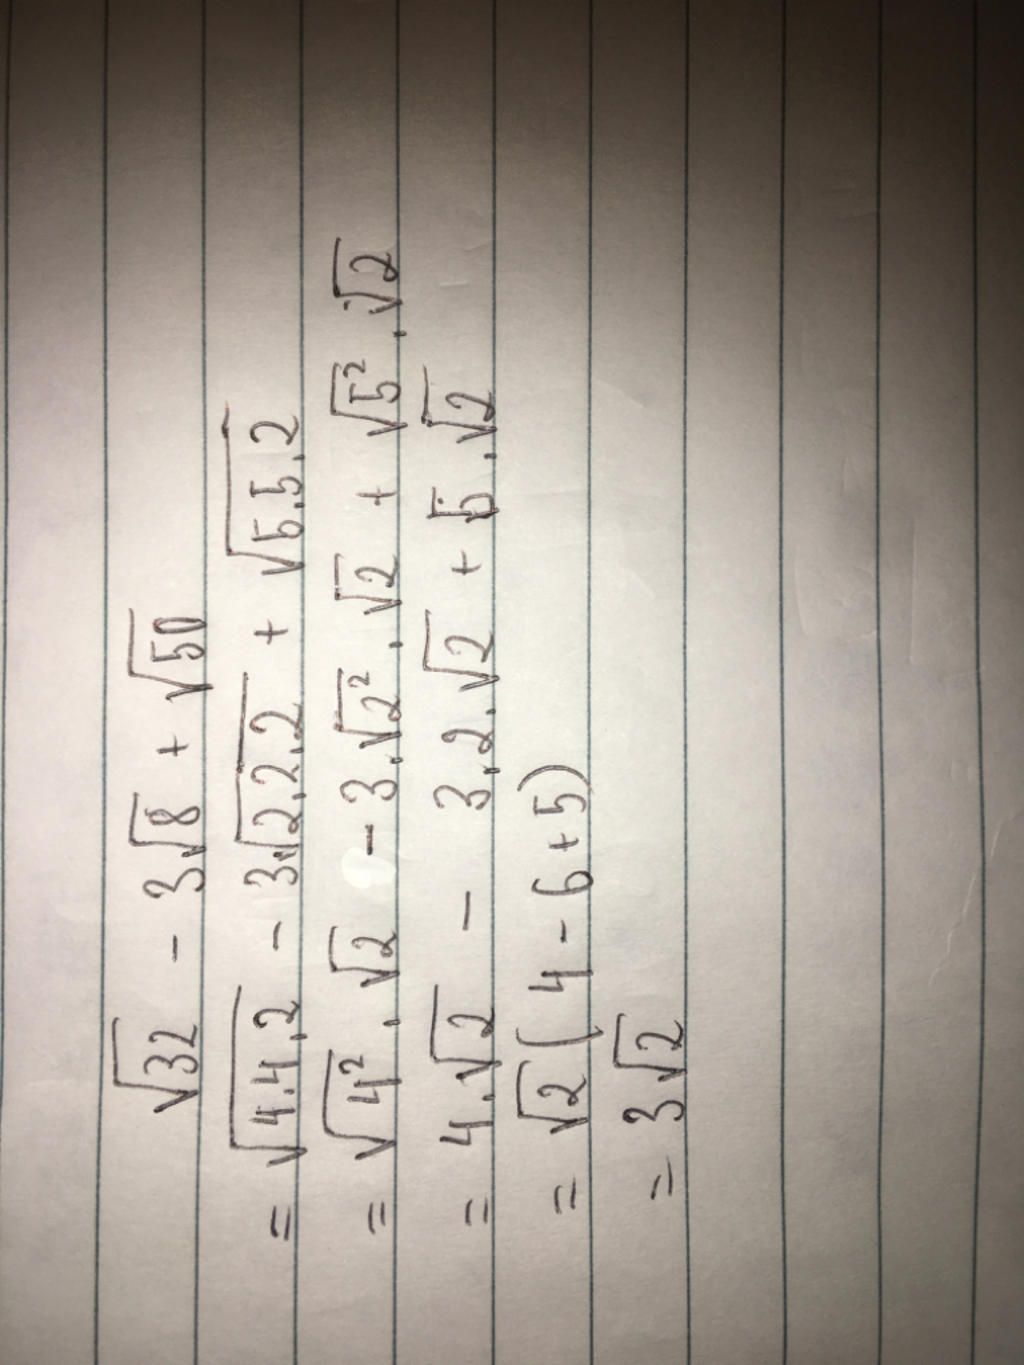 √32 - 3√8 + √50
= √4.4.2 - 3.√2.2.2 + √5.5.2
= √4² . √2 - 3.√2² . √2 + √5² . √2
= 4.√2 - 3.2.√2 + 5.√2
= √2 (4 - 6 + 5)
= 3√2